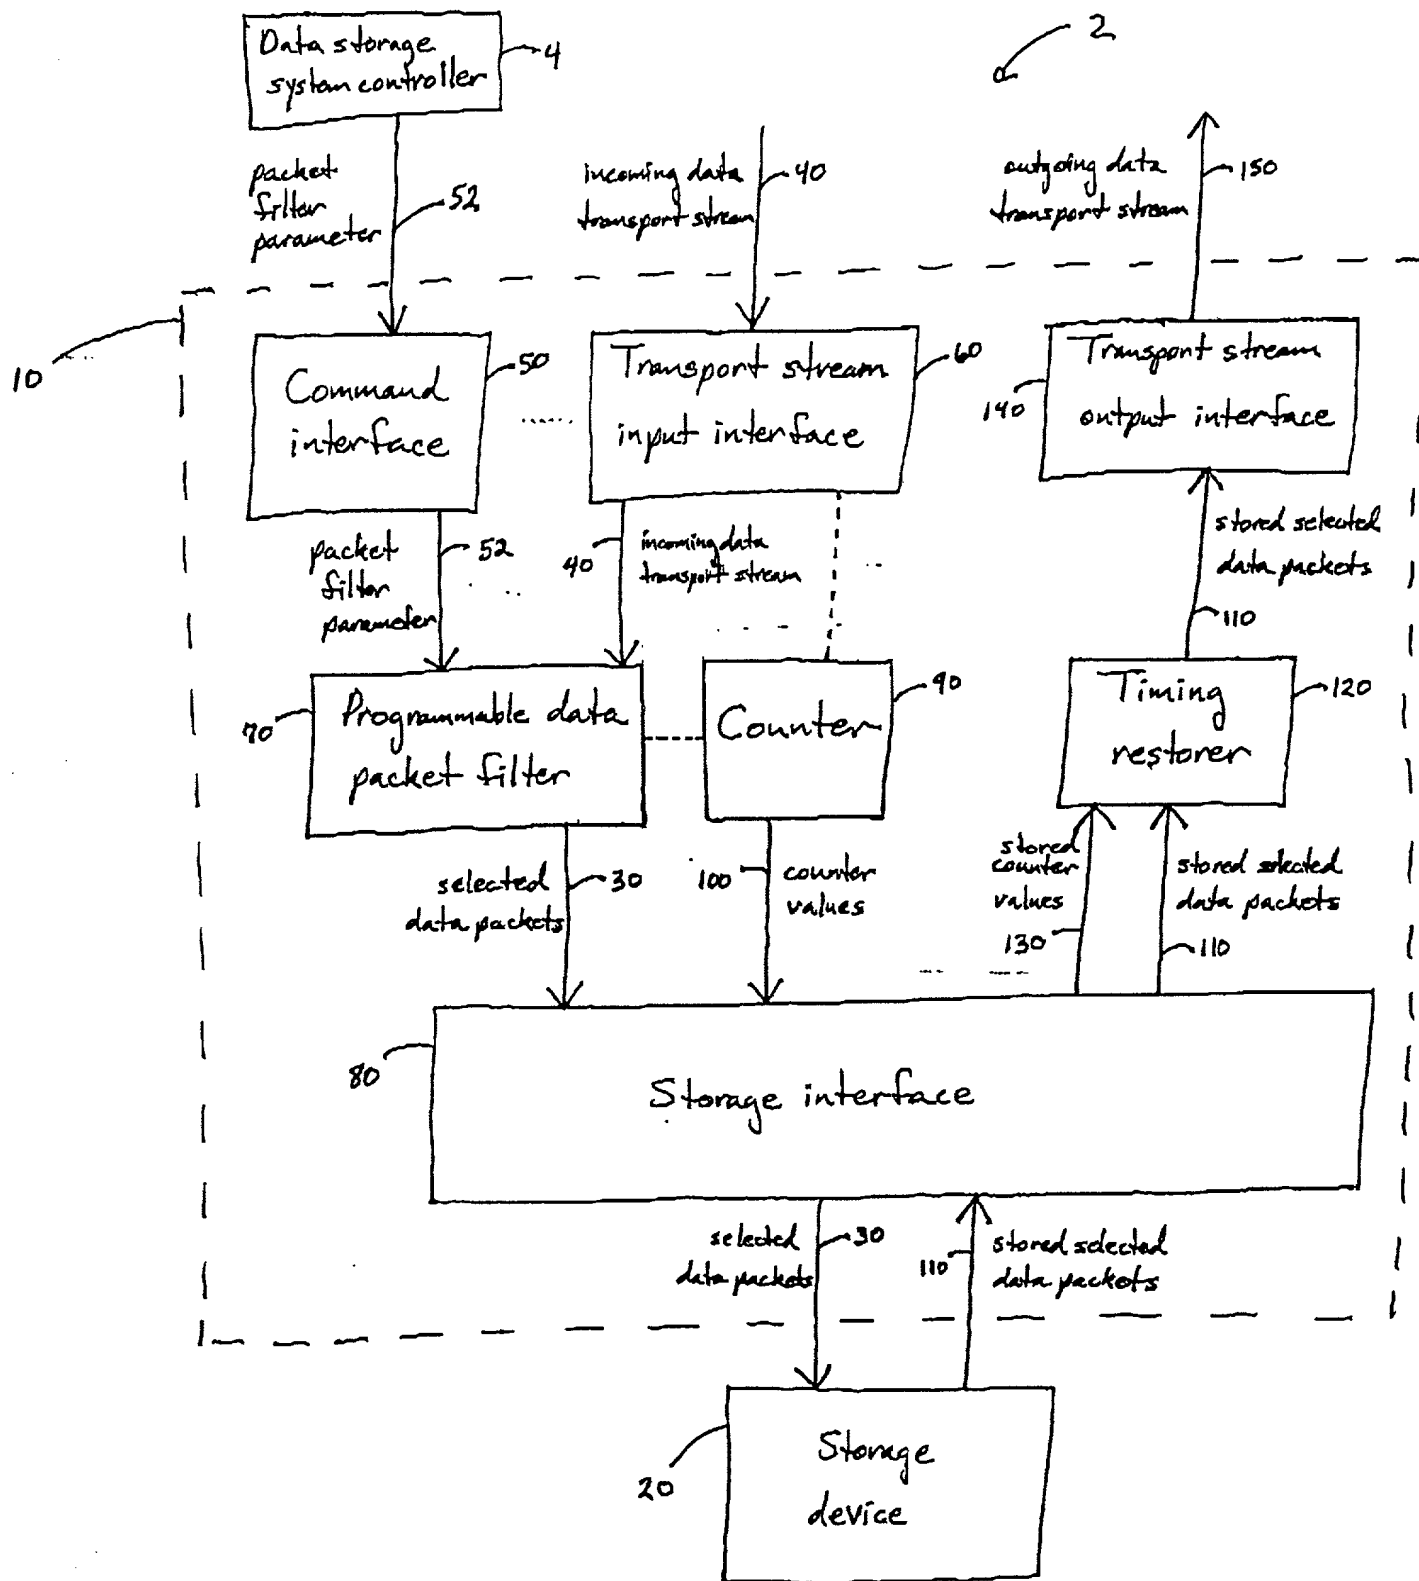 Data storage
system controller
4
2
packet
filter
parameter
52
incoming data
transport stream
40
outgoing data
transport stream
150
10
Command
interface
50
Transport stream
input interface
60
Transport stream
output interface
140
packet
filter
parameter
52
40
incoming data
transport stream
stored selected
data packets
110
Programmable data
packet filter
70
Counter
90
Timing
restorer
120
selected
data packets
30
100
counter
values
stored
counter
values
130
stored selected
data packets
110
80
Storage interface
selected
data packets
30
110
stored selected
data packets
20
Storage
device